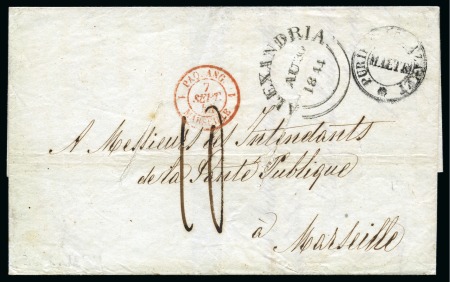 ALEXANDRIA
AU
1844
MALTE
PAQ. ANG.
7
SEPT.
A Messieurs les Intendants
de la Santé Publique
à Marseille